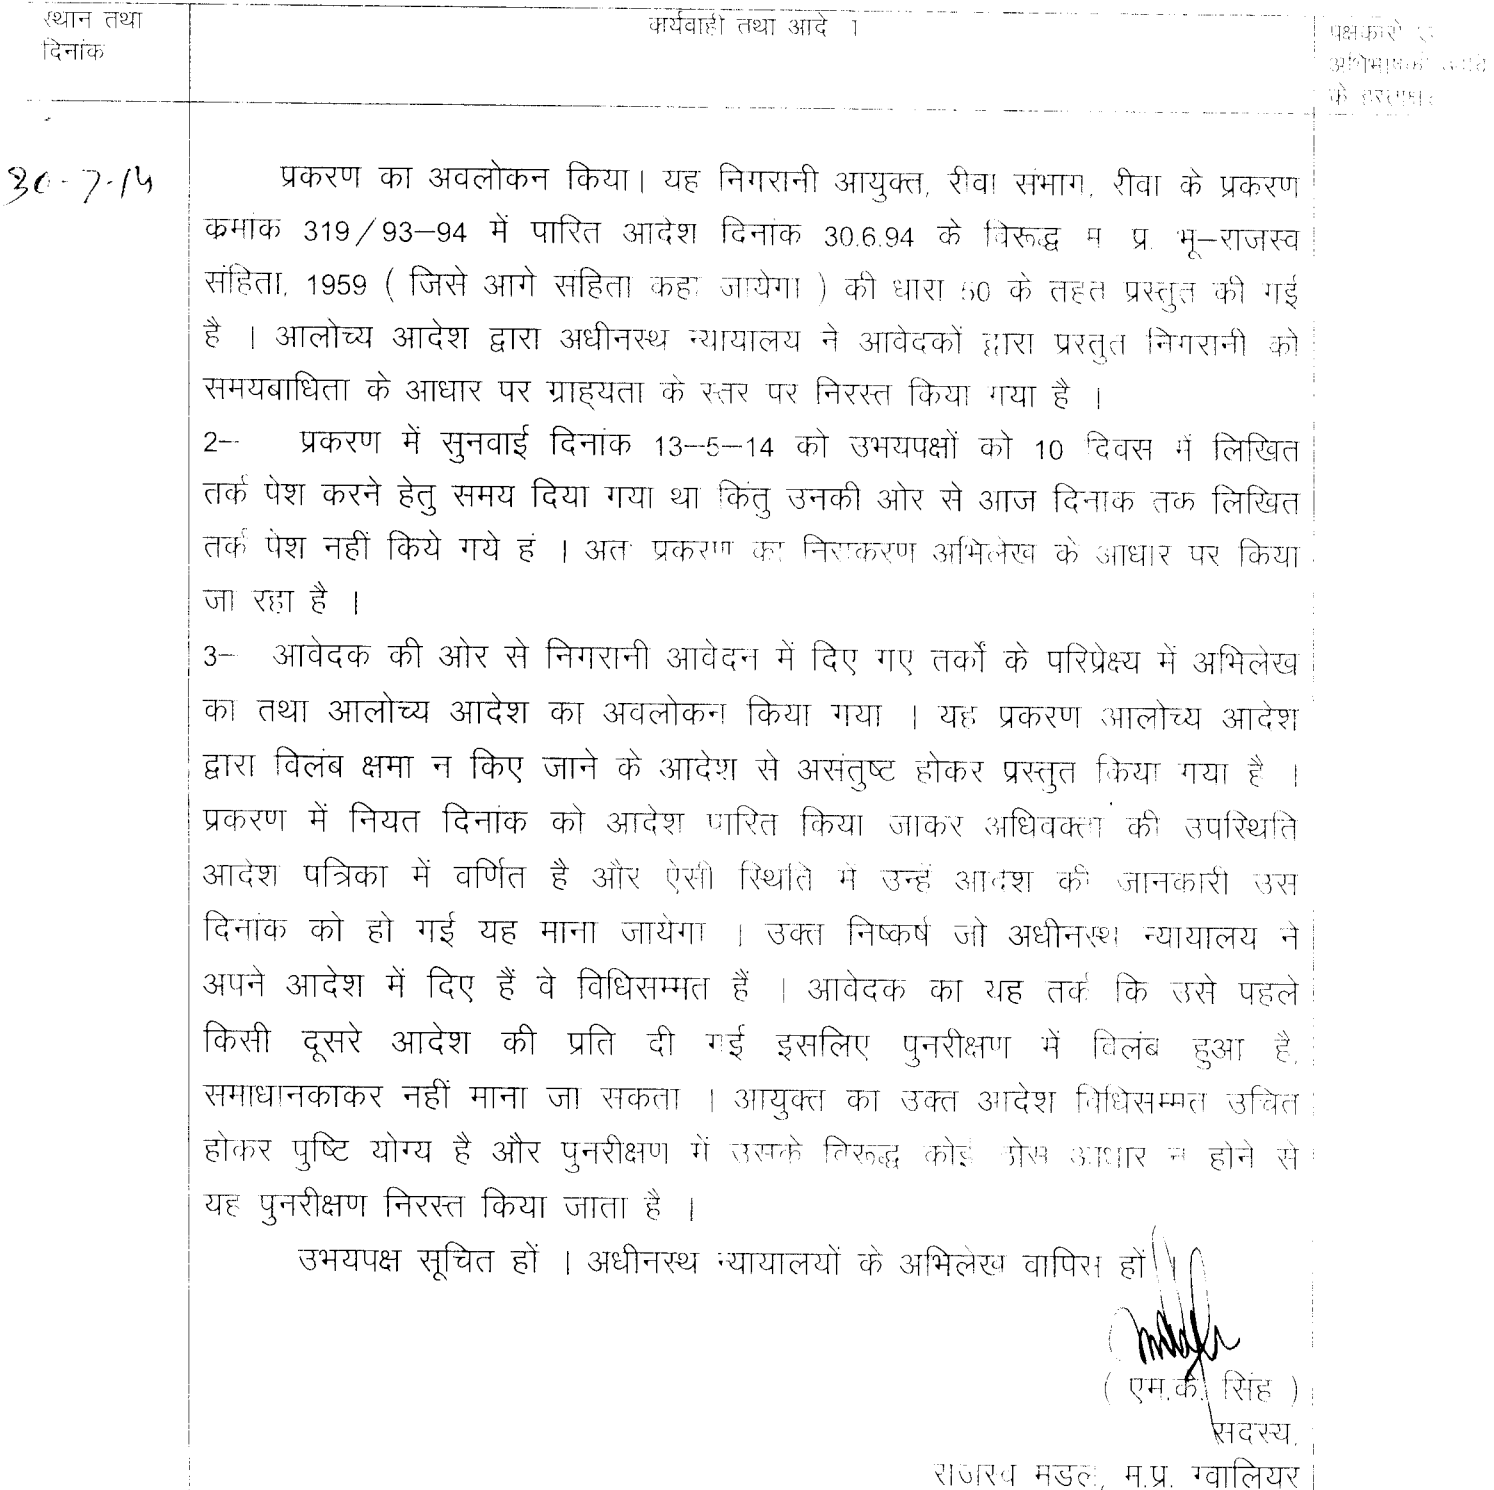 स्थान तथा
दिनांक
कार्यवाही तथा आदे  ा
पक्षकारों
अभिभाषकों
के हस्ताक्षर
30-7-14
प्रकरण का अवलोकन किया। यह निगरानी आयुक्त, रीवा संभाग, रीवा के प्रकरण
क्रमांक 319/93–94 में पारित आदेश दिनांक 30.6.94 के विरूद्ध म प्र. भू–राजस्व
संहिता, 1959 ( जिसे आगे संहिता कहा जायेगा ) की धारा 50 के तहत प्रस्तुत की गई
है । आलोच्य आदेश द्वारा अधीनस्थ न्यायालय ने आवेदकों द्वारा प्रस्तुत निगरानी को
समयबाधिता के आधार पर ग्राह्यता के स्तर पर निरस्त किया गया है ।
2– प्रकरण में सुनवाई दिनांक 13–5–14 को उभयपक्षों को 10 दिवस में लिखित
तर्क पेश करने हेतु समय दिया गया था किंतु उनकी ओर से आज दिनाक तक लिखित
तर्क पेश नहीं किये गये हं । अतः प्रकरण का निराकरण अभिलेख के आधार पर किया
जा रहा है ।
3– आवेदक की ओर से निगरानी आवेदन में दिए गए तर्कों के परिप्रेक्ष्य में अभिलेख
का तथा आलोच्य आदेश का अवलोकन किया गया । यह प्रकरण आलोच्य आदेश
द्वारा विलंब क्षमा न किए जाने के आदेश से असंतुष्ट होकर प्रस्तुत किया गया है ।
प्रकरण में नियत दिनांक को आदेश पारित किया जाकर अधिवक्ता की उपस्थिति
आदेश पत्रिका में वर्णित है और ऐसी स्थिति में उन्हें आदेश की जानकारी उस
दिनांक को हो गई यह माना जायेगा । उक्त निष्कर्ष जो अधीनस्थ न्यायालय ने
अपने आदेश में दिए हैं वे विधिसम्मत हैं । आवेदक का यह तर्क कि उसे पहले
किसी दूसरे आदेश की प्रति दी गई इसलिए पुनरीक्षण में विलंब हुआ है,
समाधानकाकर नहीं माना जा सकता । आयुक्त का उक्त आदेश विधिसम्मत उचित
होकर पुष्टि योग्य है और पुनरीक्षण में उसके विरूद्ध कोई ठोस आधार न होने से
यह पुनरीक्षण निरस्त किया जाता है ।
उभयपक्ष सूचित हों । अधीनस्थ न्यायालयों के अभिलेख वापिस हों
( एम.के. सिंह )
सदस्य,
राजस्व मंडल, म.प्र. ग्वालियर